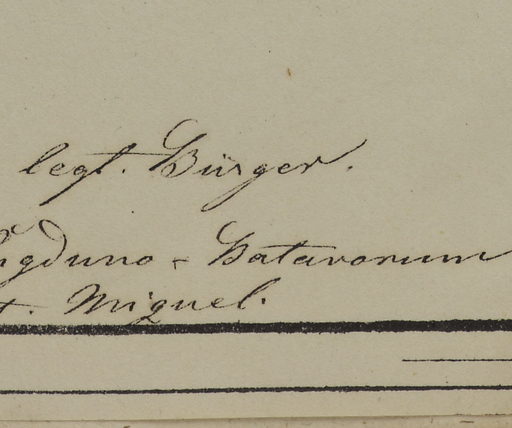 legt. Bürger.
ugduno - Batavorum
t. Miquel.